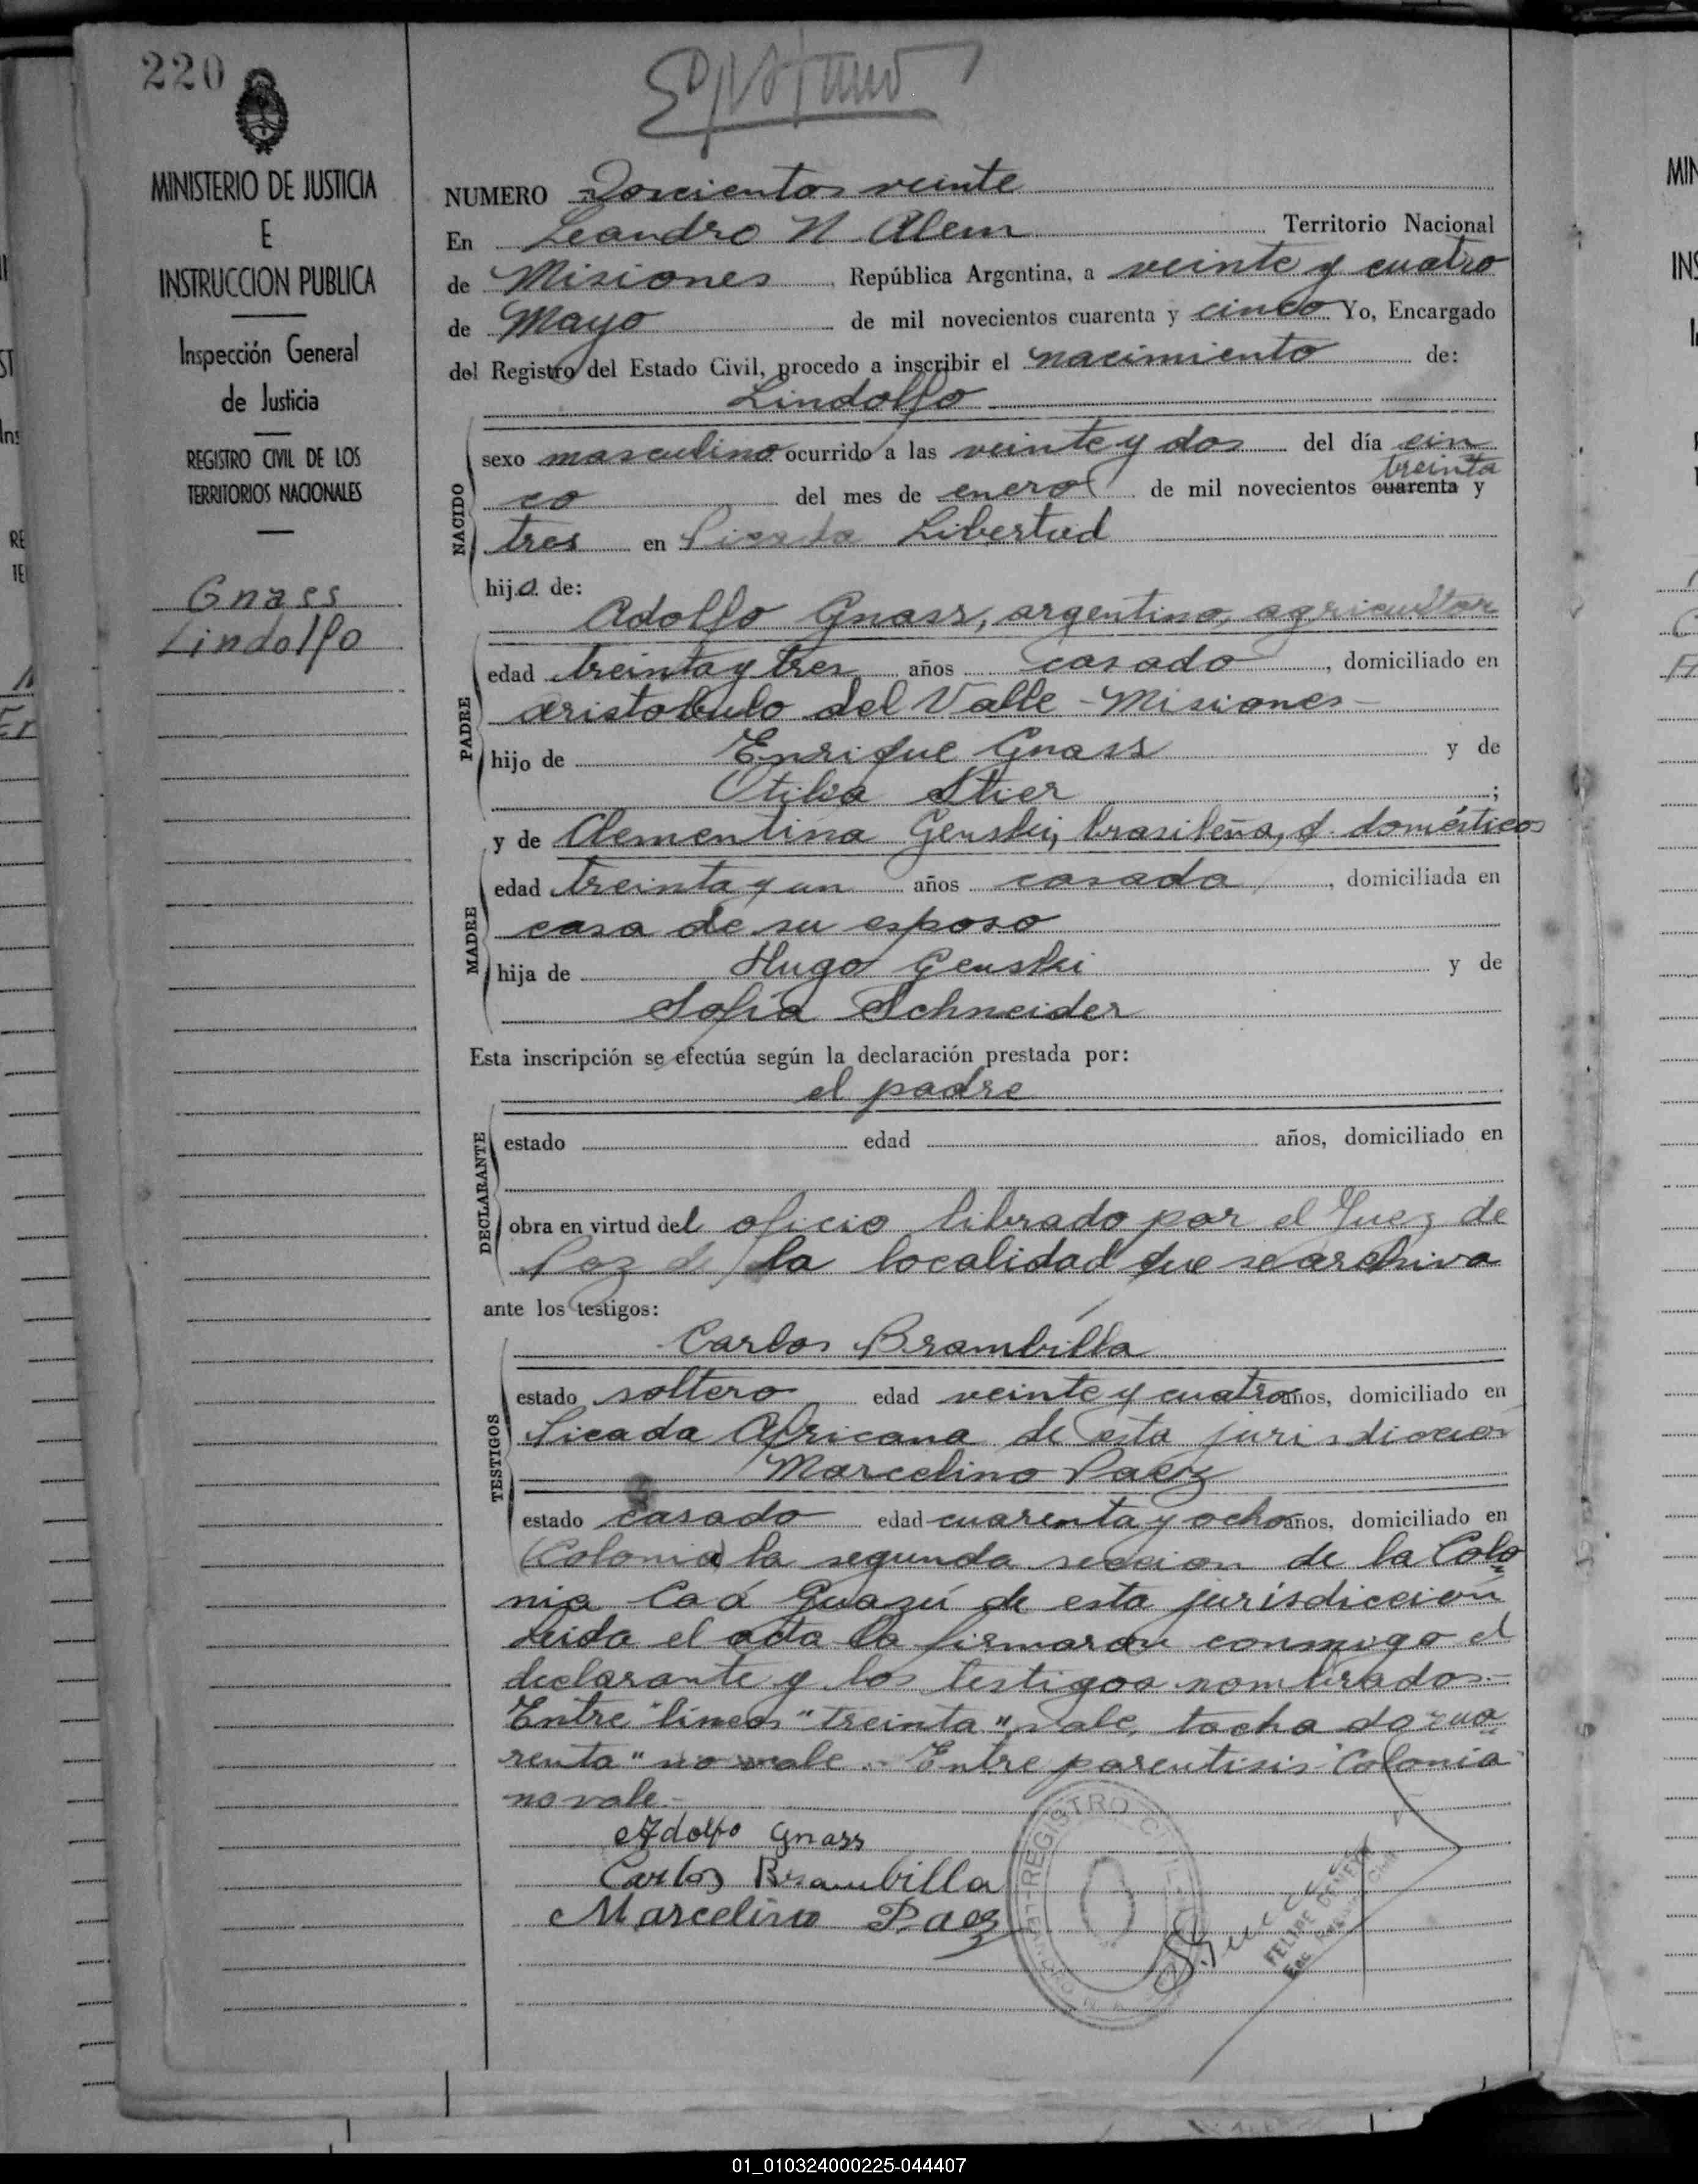 220
MINISTERIO DE JUSTICIA
E
INSTRUCCION PUBLICA
Inspección General
de Justicia
REGISTRO CIVIL DE LOS
TERRITORIOS NACIONALES
Gnass
Lindolfo
NUMERO Doscientos veinte
En Leandro N Alem Territorio Nacional
de Misiones, República Argentina, a veinte y cuatro
de Mayo de mil novecientos cuarenta y cinco Yo, Encargado
del Registro del Estado Civil, procedo a inscribir el nacimiento de:
Lindolfo
NACIDO
sexo masculino ocurrido a las veinte y dos del día cin
treinta
co del mes de enero de mil novecientos cuarenta y
tres en Picada Libertad
hijo de:
Adolfo Gnass, argentino, agricultor
PADRE
edad treinta y tres años casado, domiciliado en
aristobulo del Valle - Misiones -
hijo de Enrique Gnass y de
Otilia Stier ;
y de Clementina Genski, brasileña, q. domésticos
MADRE
edad treinta y un años casada, domiciliada en
casa de su esposo
hija de Hugo Genski y de
Sofía Schneider
Esta inscripción se efectúa según la declaración prestada por:
el padre
DECLARANTE
estado edad años, domiciliado en
obra en virtud del oficio librado por el Juez de
Paz de la localidad que se archiva
ante los testigos:
Carlos Brambilla
TESTIGOS
estado soltero edad veinte y cuatro años, domiciliado en
Picada Africana de esta jurisdiccion
Marcelino Paez
estado casado edad cuarenta y ocho años, domiciliado en
(Colonia) la segunda seccion de la Colo
nia Caá Guazú de esta jurisdicción
Leida el acta la firmaron conmigo el
declarante y los testigos nombrados.-
Entre lineas "treinta" vale, tachado cua
renta" no vale. Entre parentisis "Colonia
no vale.-
Adolfo Gnass
Carlos Brambilla
Marcelino Paez
REGISTRO CIVIL
FELIPE
01_010324000225-044407